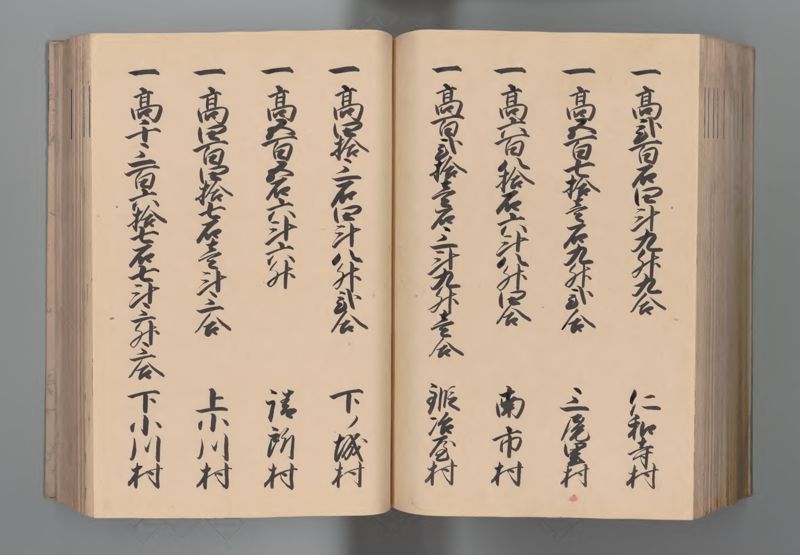 一 高弐百石四斗九升九合 仁和寺村
一 高五百七拾壱石九升弐合 三尾里村
一 高六百八拾石六斗八升四合 南市村
一 高百弐拾壱石三斗九升壱合 鍛冶屋村
一 高四拾三石四斗八升弐合 下ノ城村
一 高五百五石六斗六升 請所村
一 高四百四拾七石壱斗三合 上小川村
一 高千三百六拾七石七斗三升三合 下小川村